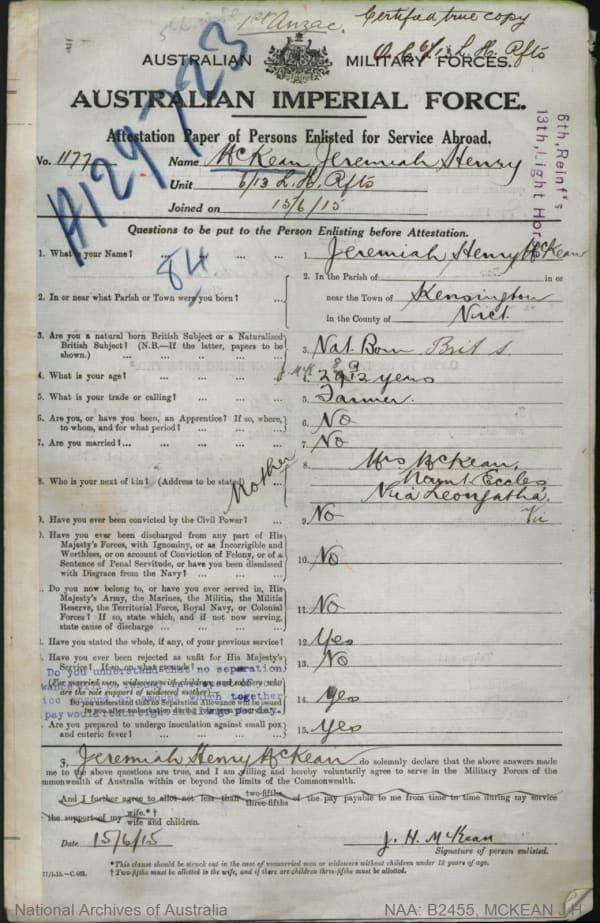 1st Anzac. Certified true copy
AUSTRALIAN MILITARY FORCES.
AUSTRALIAN IMPERIAL FORCE.
Attestation Paper of Persons Enlisted for Service Abroad.
H129723
84
6th, Reinf's
13th, Light Horse
No. 1177 Name McKean Jeremiah Henry
Unit 6/13 L. H. Rfts
Joined on 15/6/15
Questions to be put to the Person Enlisting before Attestation.
1. What is your Name? ... 1. Jeremiah Henry McKean
2. In or near what Parish or Town were you born? ... 2. In the Parish of in or
near the Town of Kensington
in the County of Vict.
3. Are you a natural born British Subject or a Naturalized
British Subject? (N.B.—If the latter, papers to be
shown.) ... 3. Nat. Born Brit S
4. What is your age? ... 4. years
5. What is your trade or calling? ... 5. Farmer.
6. Are you, or have you been, an Apprentice? If so, where,
to whom, and for what period? ... 6. No
7. Are you married?... 7. No
8. Who is your next of kin? (Address to be stated) Mother 8. Mrs McKean,
Mount Eccles
Via Leongatha.
Vic
9. Have you ever been convicted by the Civil Power? ... 9. No
Have you ever been discharged from any part of His
Majesty's Forces, with Ignominy, or as Incorrigible and
Worthless, or on account of Conviction of Felony, or of a
Sentence of Penal Servitude, or have you been dismissed
with Disgrace from the Navy? ... 10. No
Do you now belong to, or have you ever served in, His
Majesty's Army, the Marines, the Militia, the Militia
Reserve, the Territorial Force, Royal Navy, or Colonial
Forces? If so, state which, and if not now serving,
state cause of discharge ... 11. No
Have you stated the whole, if any, of your previous service? 12. Yes
Have you ever been rejected as unfit for His Majesty's
Service? If so, on what grounds? 13. No
Do you understand that no separation
(For married men, widowers with children, and soldiers who
are the sole support of widowed mother)
Do you understand that no Separation Allowance will be issued
14. Yes
Are you prepared to undergo inoculation against small pox
and enteric fever? ... 15. Yes
I, Jeremiah Henry McKean do solemnly declare that the above answers made
me to the above questions are true, and I am willing and hereby voluntarily agree to serve in the Military Forces of the
mmonwealth of Australia within or beyond the limits of the Commonwealth.
And I further agree to allot not less than two-fifths three-fifths of the pay payable to me from time to time during my service
the support of my wife.*†
wife and children.
Date 15/6/15 J. H. McKean
Signature of person enlisted.
*This clause should be struck out in the case of unmarried men or widowers without children under 18 years of age.
† Two-fifths must be allotted to the wife, and if there are children three-fifths must be allotted.
National Archives of Australia NAA: B2455, MCKEAN J H